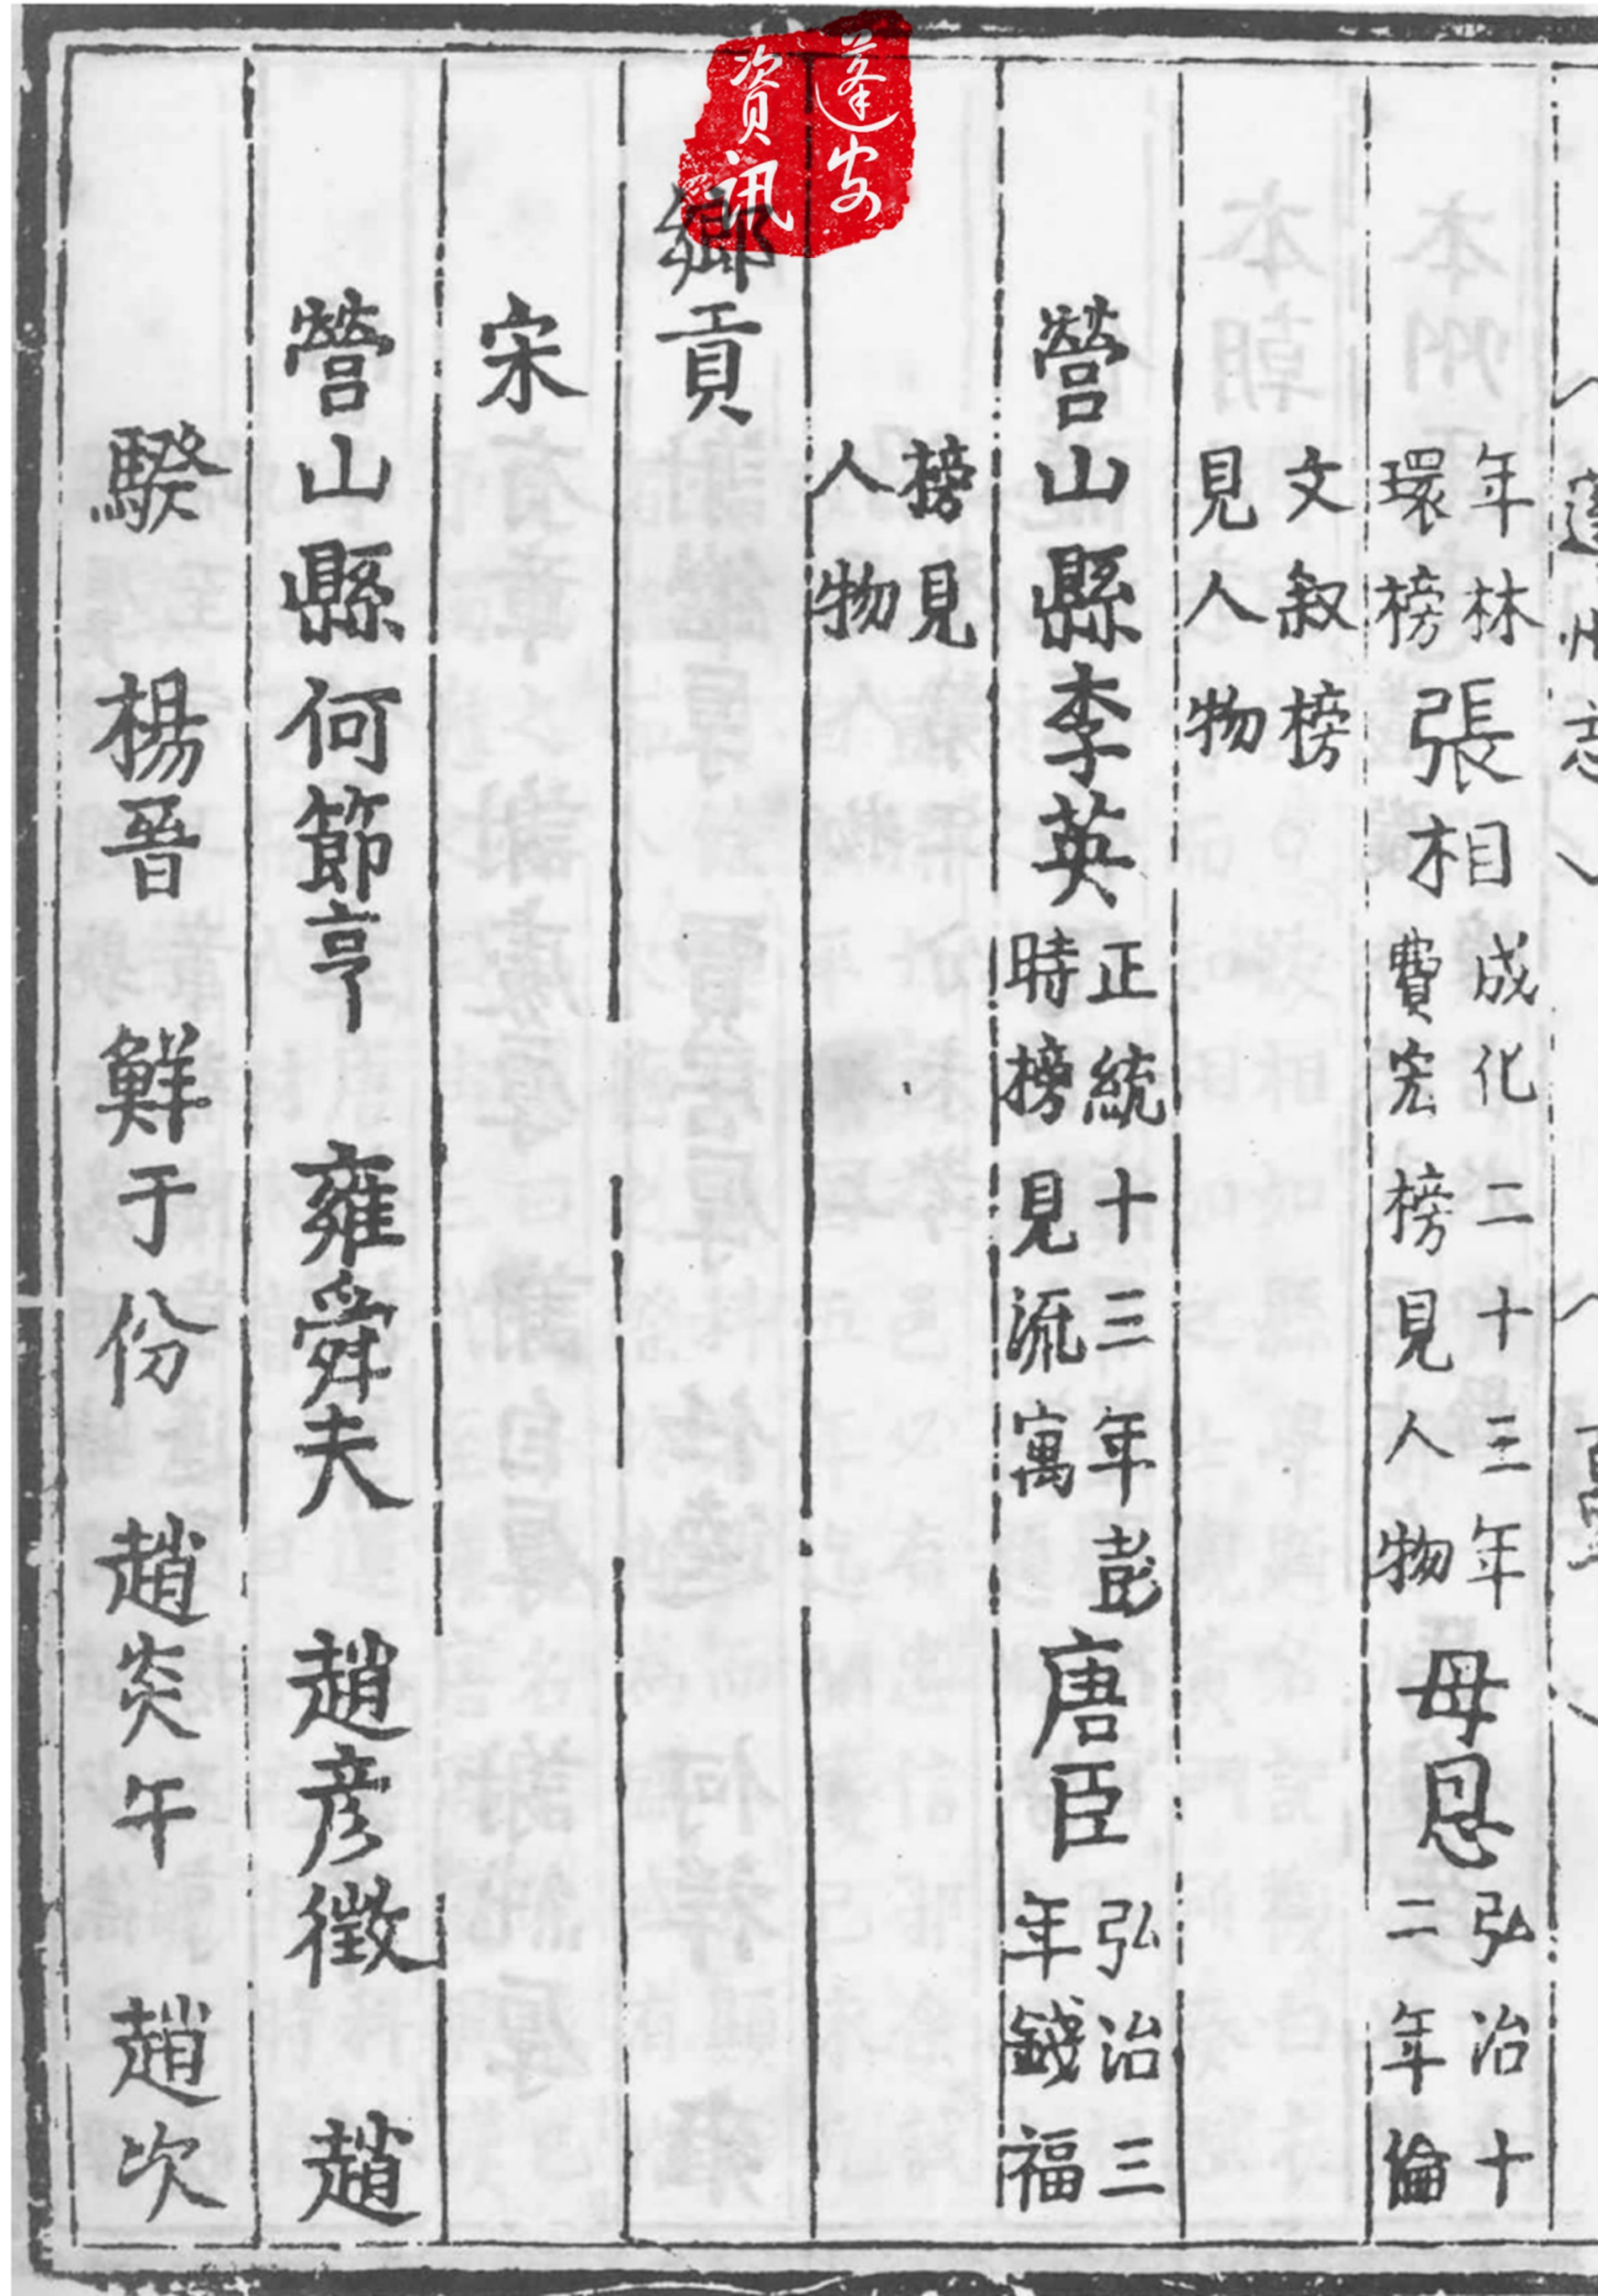 蓬州志
年林
環榜
張相
成化二十三年
費宏榜見人物
母恩
弘治十
二年倫
文叙榜
見人物
營山縣李英
正統十三年彭
時榜見流寓
唐臣
弘治三
年錢福
榜見
人物
鄉貢
宋
營山縣何節亨 雍舜夫 趙彥徵 趙
騤 楊晉 鮮于份 趙炎午 趙次
蓬安
资讯